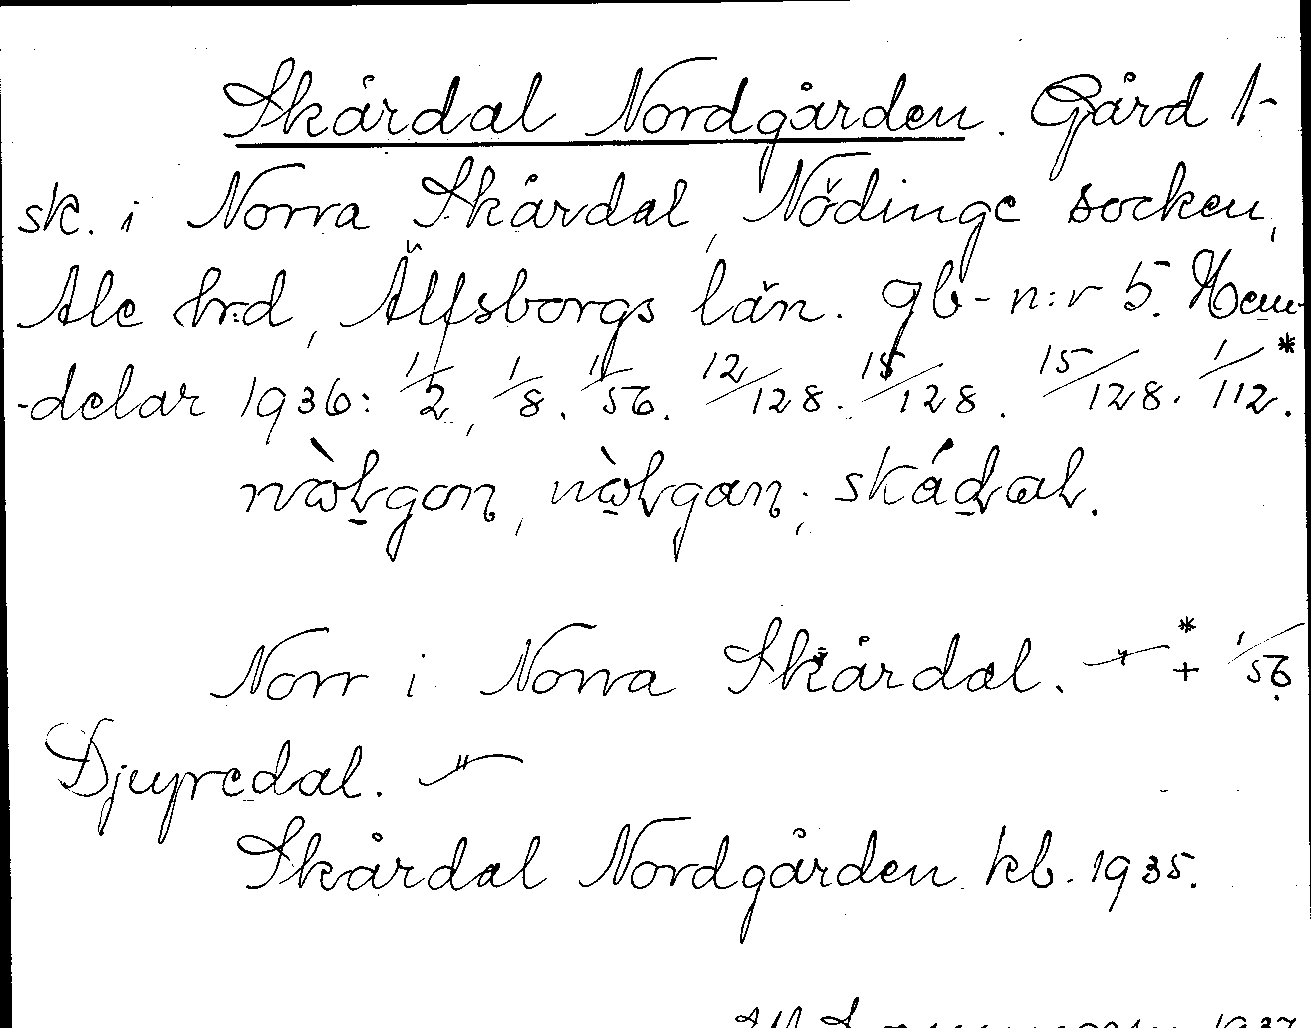 Skårdal Nordgården. Gård 1-
sk. i Norra Skårdal, Nödinge socken,
Ale hrd, Älfsborgs län. gb-n:r 5. Hem-
-delar 1936: 1/2, 1/8. 1/56. 12/128. 15/128. 15/128. 1/112.*
Norr i Norra Skårdal. * + 1/56.
Djupedal. —"—
Skårdal Nordgården kb. 1935.
1937